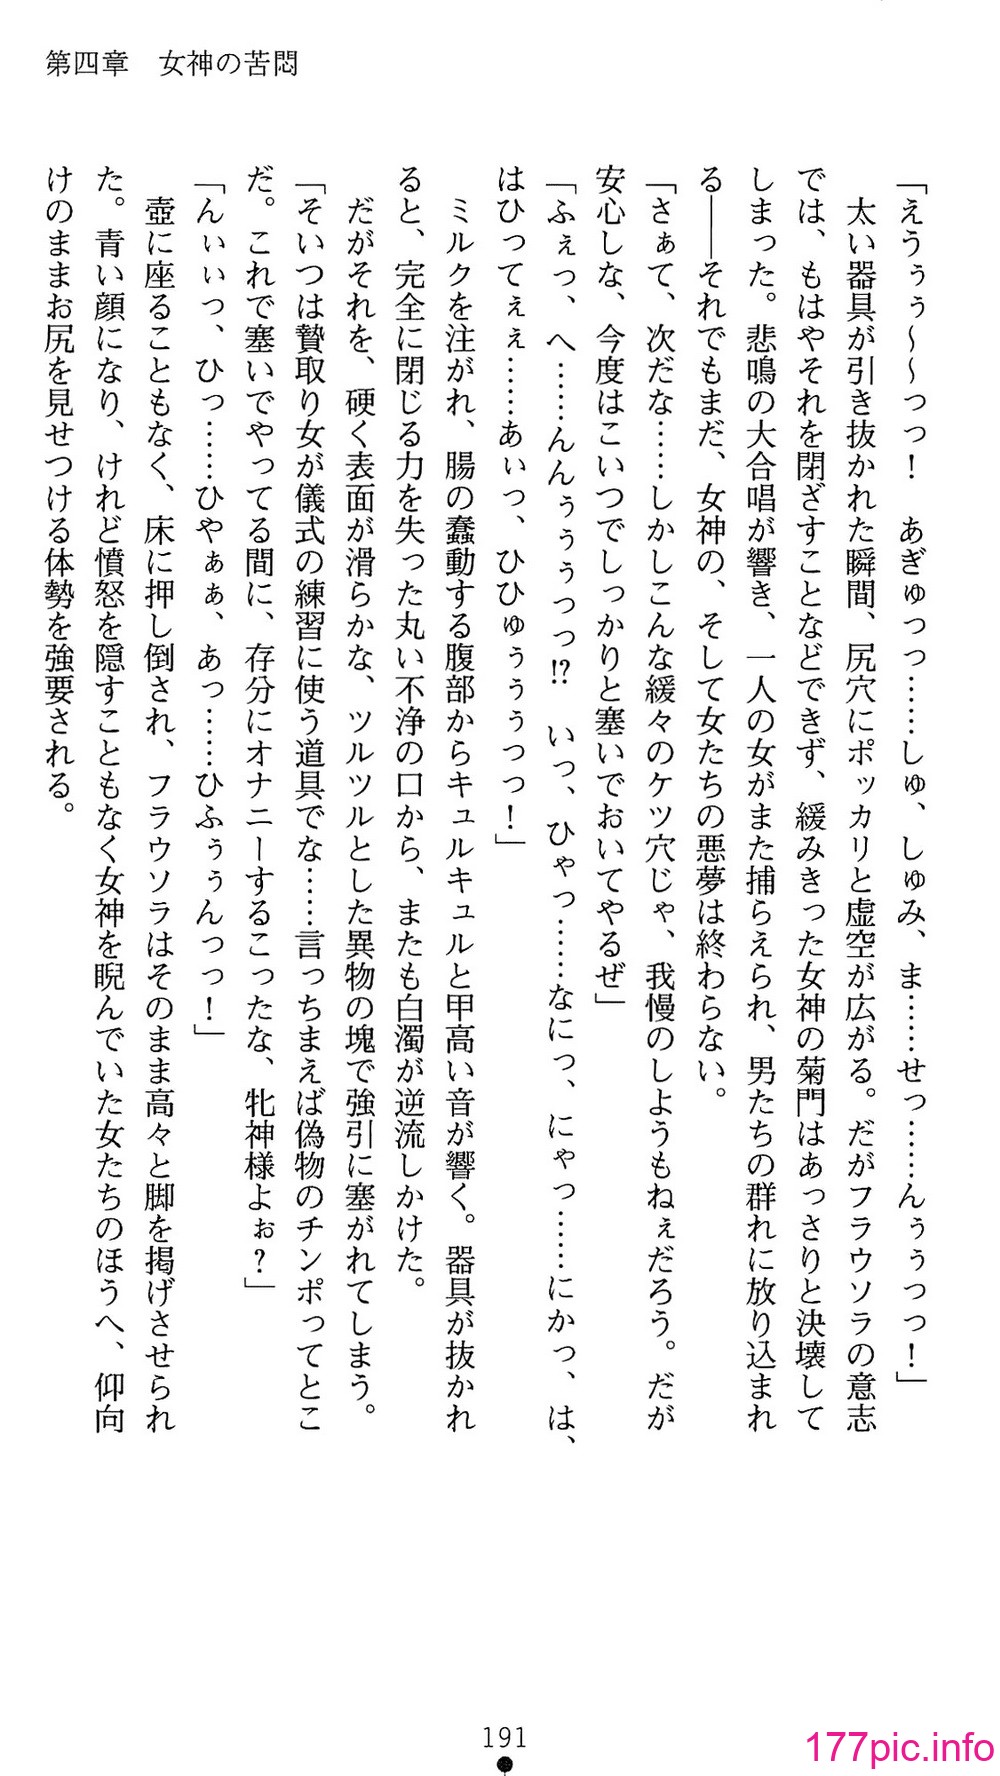 第四章　女神の苦悶
「えうぅぅ～～っっ！　あぎゅっっ……しゅ、しゅみ、ま……せっ……んぅぅっっ！」
　太い器具が引き抜かれた瞬間、尻穴にポッカリと虚空が広がる。だがフラウソラの意志
では、もはやそれを閉ざすことなどできず、緩みきった女神の菊門はあっさりと決壊して
しまった。悲鳴の大合唱が響き、一人の女がまた捕らえられ、男たちの群れに放り込まれ
る――それでもまだ、女神の、そして女たちの悪夢は終わらない。
「さぁて、次だな……しかしこんな緩々のケツ穴じゃ、我慢のしようもねぇだろう。だが
安心しな、今度はこいつでしっかりと塞いでおいてやるぜ」
「ふぇっ、へ……んんぅぅぅっっ!?　いっ、ひゃっ……なにっ、にゃっ……にかっ、は、
はひってぇぇ……あぃっ、ひひゅぅぅぅっっ！」
　ミルクを注がれ、腸の蠢動する腹部からキュルキュルと甲高い音が響く。器具が抜かれ
ると、完全に閉じる力を失った丸い不浄の口から、またも白濁が逆流しかけた。
　だがそれを、硬く表面が滑らかな、ツルツルとした異物の塊で強引に塞がれてしまう。
「そいつは贄取り女が儀式の練習に使う道具でな……言っちまえば偽物のチンポってとこ
だ。これで塞いでやってる間に、存分にオナニーするこったな、牝神様よぉ？」
「んぃぃっ、ひっ……ひやぁぁ、あっ……ひふぅぅんっっ！」
　壺に座ることもなく、床に押し倒され、フラウソラはそのまま高々と脚を掲げさせられ
た。青い顔になり、けれど憤怒を隠すこともなく女神を睨んでいた女たちのほうへ、仰向
けのままお尻を見せつける体勢を強要される。
191
177pic.info